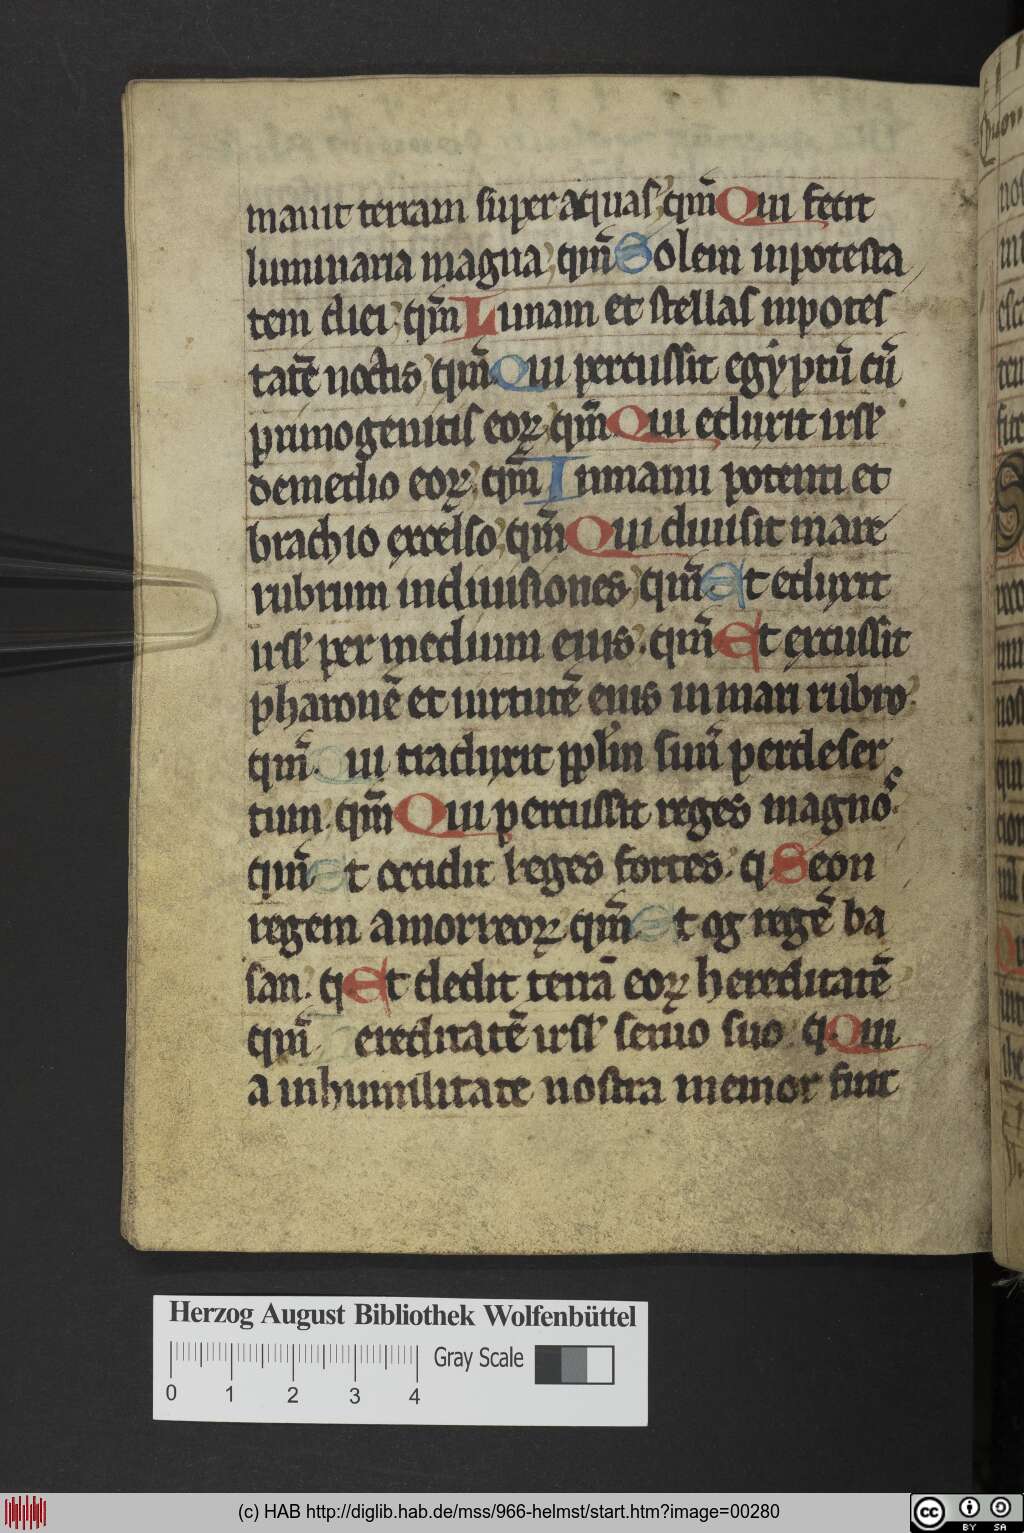 mauit terram super aquas. qm̄ Qui fecit
luminaria magna. qm̄ Solem inpotesta
tem diei. qm̄ Lunam et stellas inpotes
tatē noctis. qm̄ Qui percussit egẏptū cū
primogenitis eoꝝ. qm̄ Qui eduxit isrl̓
demedio eoꝝ. qm̄ Inmanu potenti et
brachio excelso. qm̄ Qui diuisit mare
rubrum indiuisiones. qm̄ Et eduxit
isrl̓ per medium eius. qm̄ Et excussit
pharonē et uirtutē eius in mari rubro.
qm̄. Qui traduxit pplm̄ suū per deser
tum. qm̄ Qui percussit reges magnos.
qm̄ Et occidit reges fortes. q. Seon
regem amorreoꝝ qm̄. Et og regē ba
san. q. Et dedit terrā eoꝝ hereditatē
qm̄ Hereditatē isrl̓ seruo suo. q. Qui
a inhumilitate nostra memor fuit
Herzog August Bibliothek Wolfenbüttel
0 1 2 3 4
Gray Scale
(c) HAB http://diglib.hab.de/mss/966-helmst/start.htm?image=00280
cc BY SA